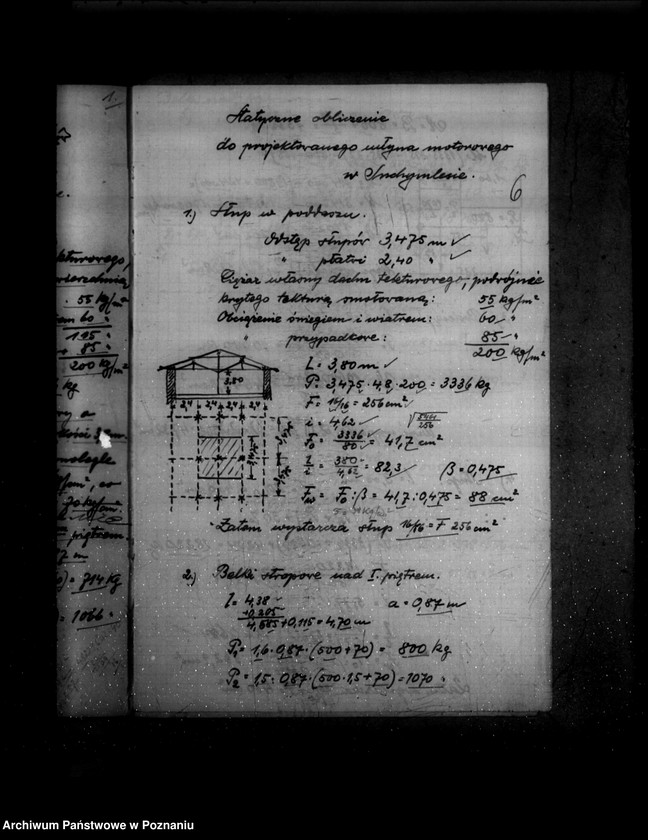 1.
kturowego,
. 55 kg/m²
60 "
195
85 "
200 kg/m²
kg
714 kg
= 1066 "
Statyczne obliczenie
do projektowanego młyna motorowego
w Suchymlesie.
6
1.) Słup w poddaszu.
Odstęp słupów 3,475 m ✓
" płatwi 2,40 " ✓
Ciężar własny dachu tekturowego, podwójnie
krytego tekturą smołowaną: 55 kg/m²
Obciążenie śniegiem i wiatrem: 60 "
" przypadkowe: 85 "
200 kg/m²
l = 3,80 m ✓
P = 3,475 · 4,8 · 200 = 3336 kg
F = 16/16 = 256 cm² ✓
i = 4,62 ✓
F₀ = 3336/80 = 41,7 cm²
l/i = 380/4,62 = 82,3 β = 0,475
Fω = F₀ : β = 41,7 : 0,475 = 88 cm²
Zatem wystarcza słup 16/16 = F 256 cm²
3.80
2,4 2,4 2,4 2,4
2.) Belki stropowe nad I. piętrem.
l = 4,38 ✓ a = 0,87 m
+0,205
4,585 + 0,115 = 4,70 m
P₁ = 1,6 · 0,87 · (500 + 70) = 800 kg
P₂ = 1,5 · 0,87 · (500 · 1,5 + 70) = 1070 "
Archiwum Państwowe w Poznaniu